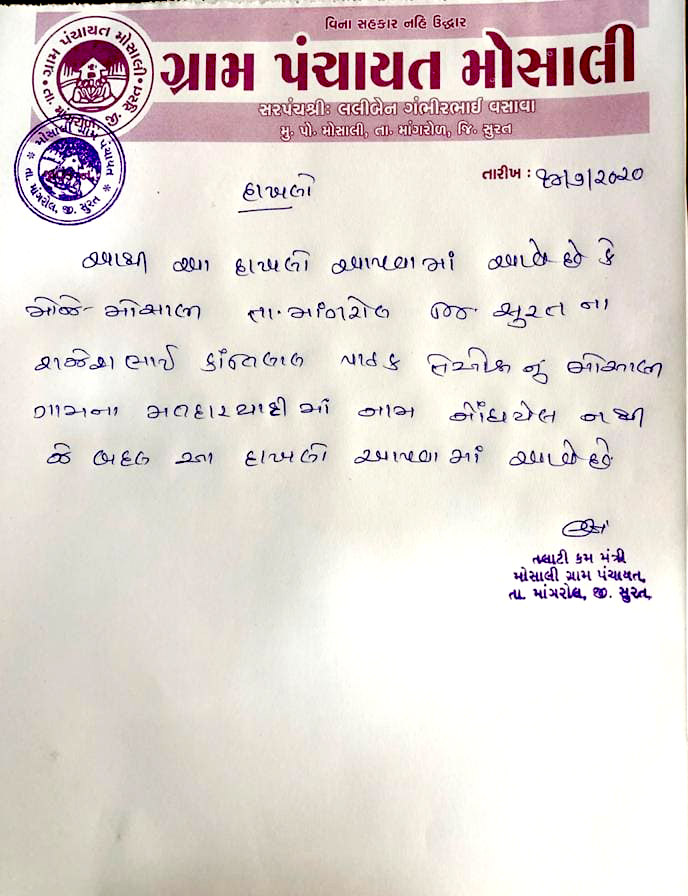 વિના સહકાર નહિ ઉદ્ધાર
ગ્રામ પંચાયત મોસાલી
સરપંચશ્રી: લલીબેન ગંભીરભાઈ વસાવા
મુ. પો. મોસાલી, તા. માંગરોળ, જિ. સુરત
ગ્રામ પંચાયત મોસાલી
તા. માંગરોળ, જી. સુરત
મોસાલી ગ્રામ પંચાયત
તા. માંગરોલ, જી. સુરત
તારીખ : ૧૪/૭/૨૦૨૦
દાખલો
આથી આ દાખલો આપવામાં આવે છે કે
મોજે-મોસાલી તા. માંગરોલ જિ. સુરત ના
રાજેશભાઈ કાંતિલાલ પાઠક તેઓનું મોસાલી
ગામના મતદારયાદી માં નામ નોંધાયેલ નથી
જે બદલ આ દાખલો આપવામાં આવે છે
તલાટી કમ મંત્રી
મોસાલી ગ્રામ પંચાયત,
તા. માંગરોલ, જી. સુરત.